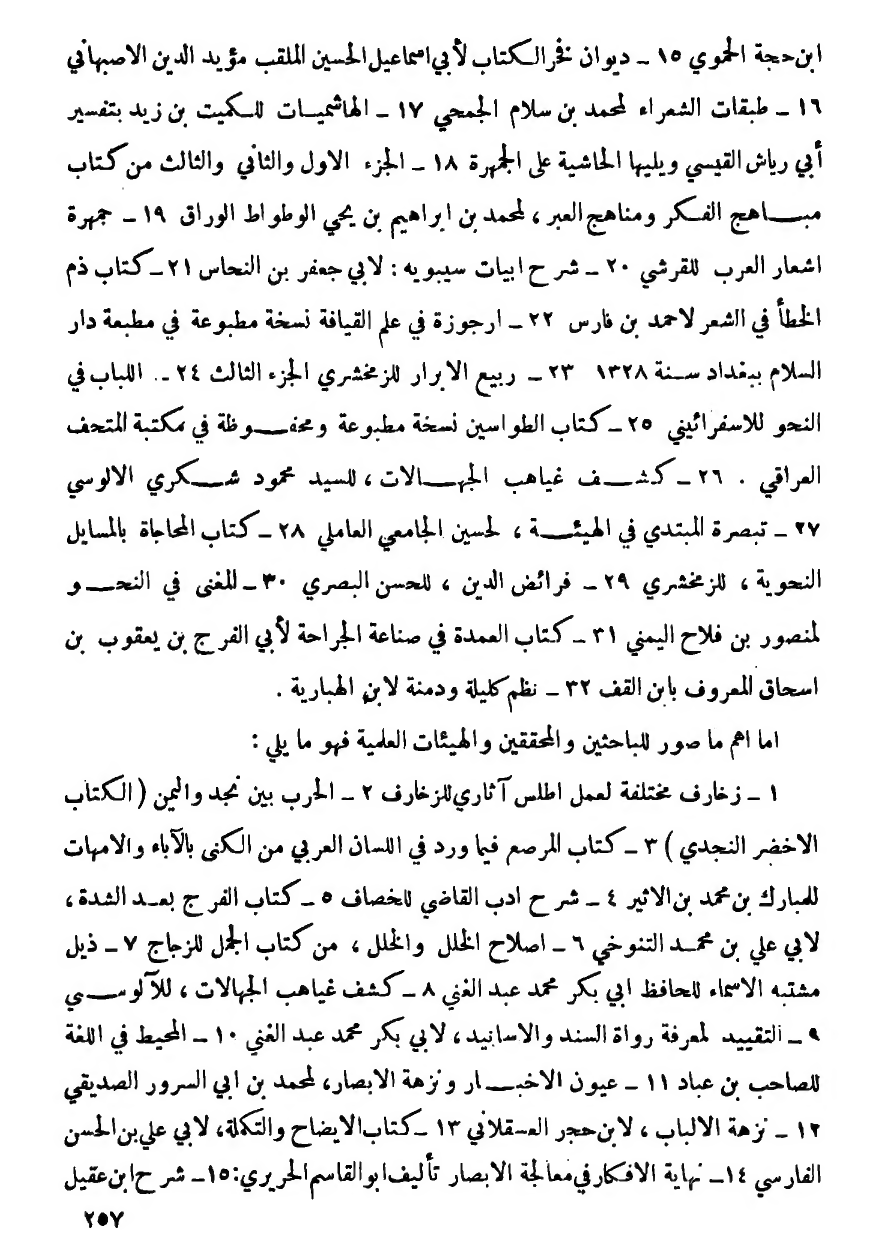 ابن حجة الحموي ١٥ ـ ديوان فخر الكتاب لأبي اسماعيل الحسين الملقب مؤيد الدين الاصبهاني
١٦ ـ طبقات الشعراء لمحمد بن سلام الجمحي ١٧ ـ الهاشميات للكميت بن زيد بتفسير
أبي رياش القيسي ويليها الحاشية على الجمهرة ١٨ ـ الجزء الاول والثاني والثالث من كتاب
مباهج الفكر ومناهج العبر ، لمحمد بن ابراهيم بن يحي الوطواط الوراق ١٩ ـ جمهرة
اشعار العرب للقرشي ٢٠ ـ شرح ابيات سيبويه : لابي جعفر بن النحاس ٢١ ـ كتاب ذم
الخطأ في الشعر لاحمد بن فارس ٢٢ ـ ارجوزة في علم القيافة نسخة مطبوعة في مطبعة دار
السلام ببغداد سنة ١٣٢٨ ٢٣ ـ ربيع الابرار للزمخشري الجزء الثالث ٢٤ ـ. اللباب في
النحو للاسفرائيني ٢٥ ـ كتاب الطواسين نسخة مطبوعة ومحفوظة في مكتبة المتحف
العراقي . ٢٦ ـ كشف غياهب الجهالات ، للسيد محمود شكري الالوسي
٢٧ ـ تبصرة المبتدي في الهيئة ، لحسين الجامعي العاملي ٢٨ ـ كتاب المحاجاة بالمسايل
النحوية ، للزمخشري ٢٩ ـ فرائض الدين ، للحسن البصري ٣٠ ـ المغنى في النحو
لمنصور بن فلاح اليمني ٣١ ـ كتاب العمدة في صناعة الجراحة لأبي الفرج بن يعقوب بن
اسحاق المعروف بابن القف ٣٢ ـ نظم كليلة ودمنة لابن الهبارية .
اما اهم ما صور للباحثين والمحققين والهيئات العلمية فهو ما يلي :
١ ـ زخارف مختلفة لعمل اطلس آثاري للزخارف ٢ ـ الحرب بين نجد واليمن ( الكتاب
الاخضر النجدي ) ٣ ـ كتاب المرصع فيما ورد في اللسان العربي من الكنى بالآباء والامهات
للمبارك بن محمد بن الاثير ٤ ـ شرح ادب القاضي للخصاف ٥ ـ كتاب الفرج بعد الشدة ،
لابي علي بن محمد التنوخي ٦ ـ اصلاح الخلل والخلل ، من كتاب الجمل للزجاج ٧ ـ ذيل
مشتبه الاسماء للحافظ ابي بكر محمد عبد الغني ٨ ـ كشف غياهب الجهالات ، للآلوسي
٩ ـ التقييد لمعرفة رواة السند والاسانيد ، لابي بكر محمد عبد الغني ١٠ ـ المحيط في اللغة
للصاحب بن عباد ١١ ـ عيون الاخبار ونزهة الابصار، لمحمد بن ابي السرور الصديقي
١٢ ـ نزهة الالباب ، لابن حجر العسقلاني ١٣ ـ كتاب الايضاح والتكملة، لابي علي بن الحسن
الفارسي ١٤ ـ نهاية الافكار في معالجة الابصار تأليف ابو القاسم الحريري: ١٥ ـ شرح ابن عقيل
٢٥٧